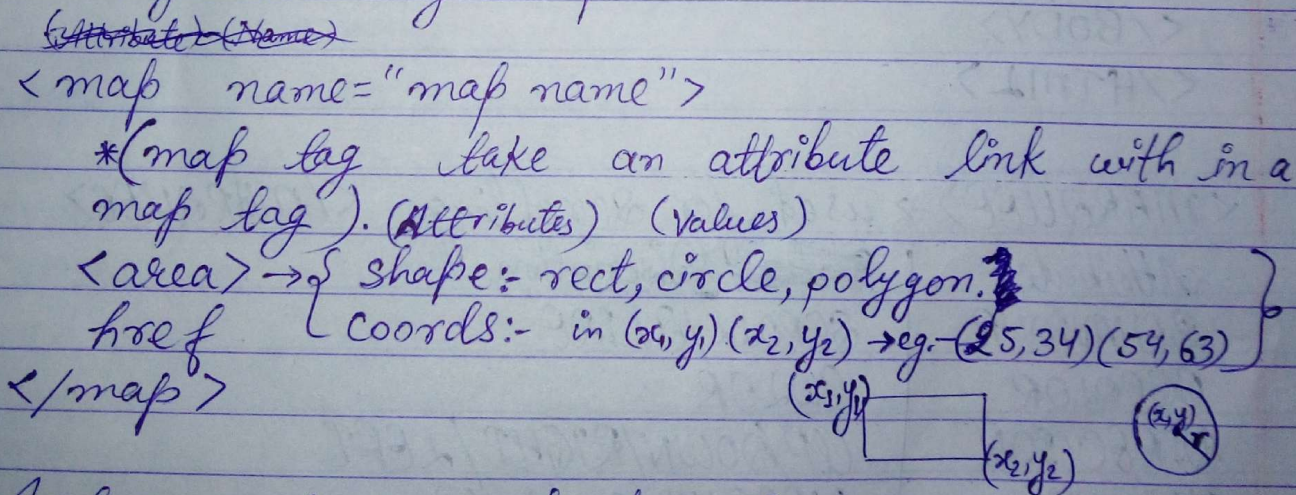 (Attribute)-(Name)
<map name="map name">
*(map tag take an attribute link with in a
map tag). (Attributes) (values)
<area>→{ shape:- rect, circle, polygon.
href coords:- in (x1, y1) (x2, y2) → eg.-(25,34)(54,63) }
</map>
(x1,y1)
(x,y) r
(x2,y2)